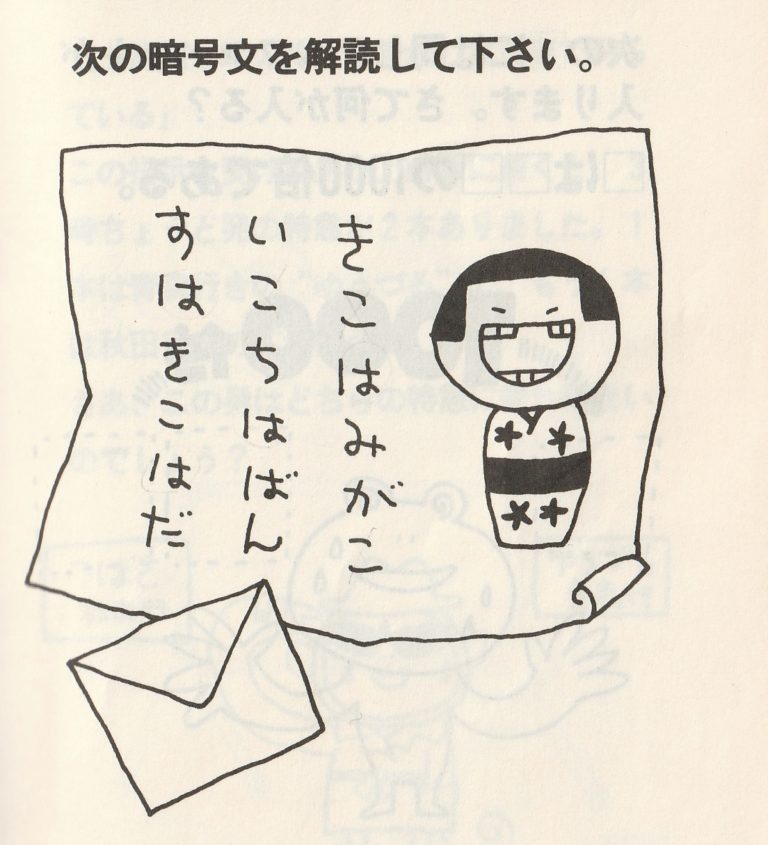 次の暗号文を解読して下さい。
きこはみがこ
いこちはばん
すはきこはだ